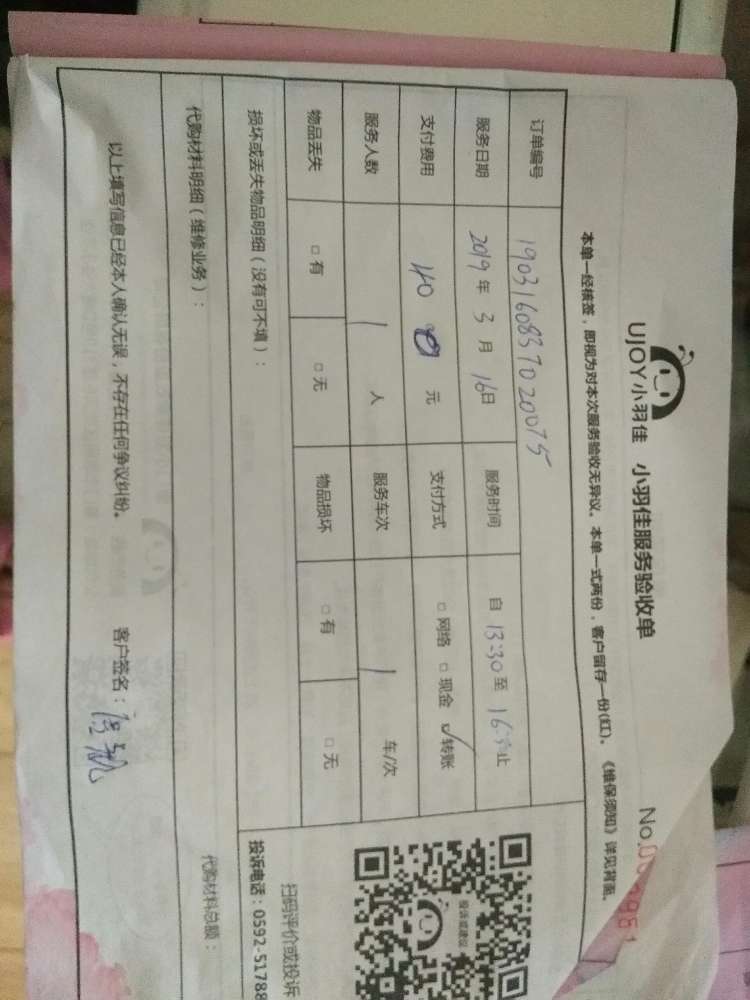 UJOY小羽佳 小羽佳服务验收单
No.
本单一经核签，即视为对本次服务验收无异议。本单一式两份，客户留存一份(红)。《维保须知》详见背面。
订单编号 1903160837020075
服务日期 2019年3月16日 服务时间 自13:30至 止
支付费用 元 支付方式 □网络 □现金 ☑转账
服务人数 1人 服务车次 1车/次
物品丢失 □有 □无 物品损坏 □有 □无
损坏或丢失物品明细（没有可不填）：
投诉或建议
扫码评价或投诉
投诉电话：0592-51788
代购材料明细（维修业务）：
代购材料总额：
以上填写信息已经本人确认无误，不存在任何争议纠纷。 客户签名：